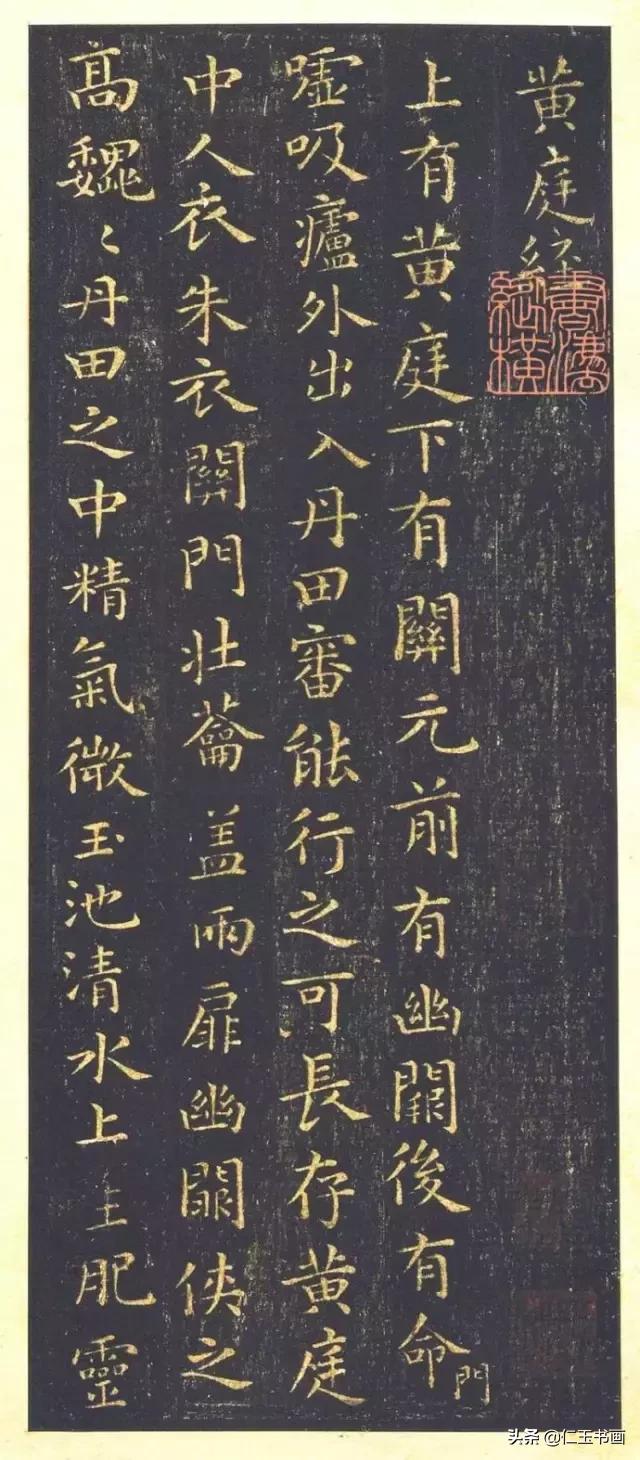 黄庭經
上有黄庭下有關元前有幽闕後有命門
嘘吸廬外出入丹田審能行之可長存黄庭
中人衣朱衣關門壯蘥盖兩扉幽闕俠之
高魏〻丹田之中精氣微玉池清水上生肥靈
头条 @仁玉书画